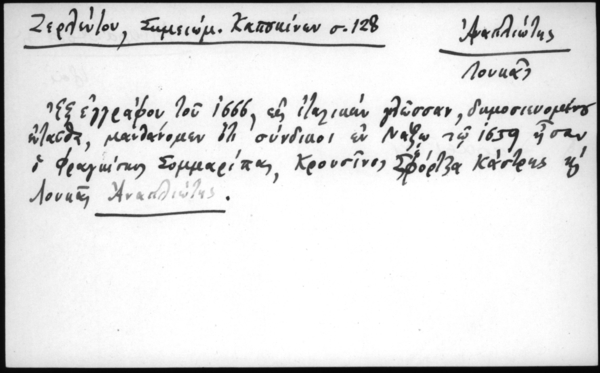 Ζερλέντου, Σημειώμ. Καπουκίνων σ. 128
Ἀναπλιώτης
Λουκᾶς
Ἐξ ἐγγράφου τοῦ 1666, εἰς ἰταλικὴν γλῶσσαν, δημοσιευομένου
ἐνταῦθα, μανθάνομεν ὅτι σύνδικοι ἐν Νάξῳ τῷ 1659 ἦσαν
ὁ Φραγκίσκος Σομμαρίπας, Κρουσῖνος Σφόρτζα Κάστρης κ
Λουκᾶς Ἀναπλιώτης.